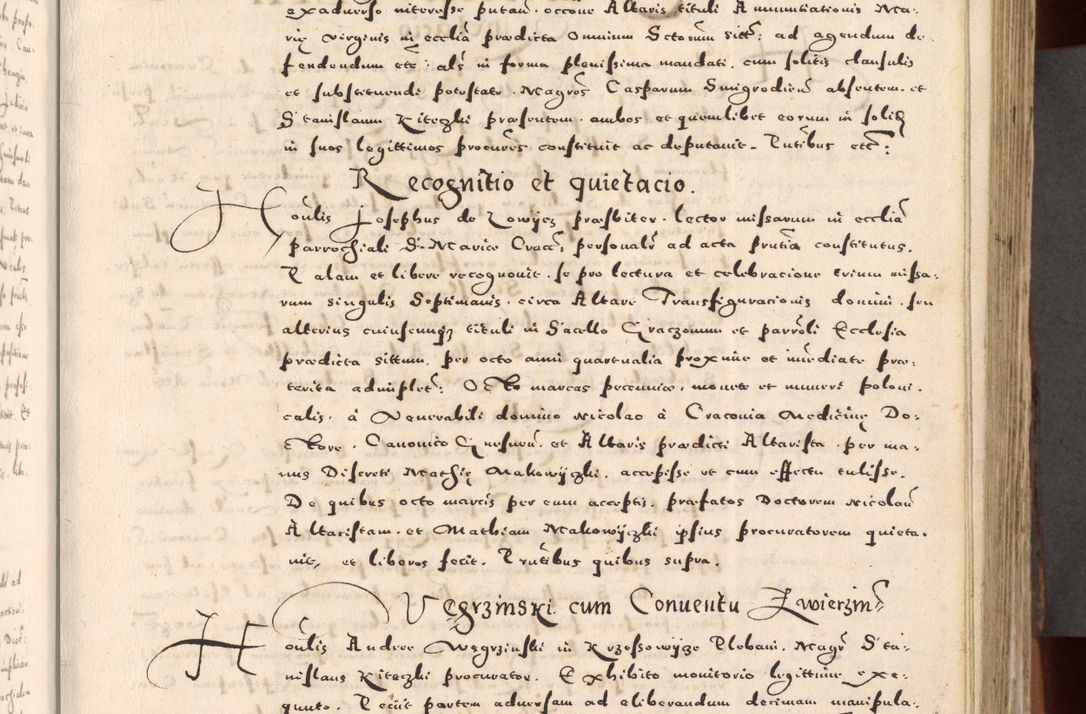 exaduerso niteresse putan̄. occone Altaris tituli Annuntiationis Ma-
rię virginis in eccliā prædicta omnium Sctorum sitt: ad agendum de-
fendendum etc: als in forma plenissima mandati. cum solitis clausulis
et substituendi potestate. Magros Casparum Smigrodien̄ absentem. et
Stanislaum Kiteczki præsentem. ambos et quemlibet eorum in solid
in suos legittimos procures constituit ac deputauit. Pntibus etc:
Recognitio et quietacio.
Honlis Josephus de Lowycz præsbiter. lector missarum in eccliā
parrochiali S. Marie Cracc̄, personalr ad acta pnntia constitutus.
Palam et libere recognouit. se pro lectura et celebracione trium missa-
rum singulis Septimanis. circa Altare Transfiguracionis domini. seu
alterius cuiuscunq3 tituli in Sacello Graczonum et parroli Ecclesia
prædicta sittum. per octo anni quartualia proxime et imediate præ-
terita adimplet: Octo marcas pecunie. monete et numeri poloni-
calis. à Venerabili domino Nicolao à Craconia Medicinę Do-
ctore. Canonico Gnesnen̄. et Altaris prædicti Altarista. per ma-
nus Discreti Mathię Makowyczki. accepisse et cum effectu tulisse.
De quibus octo marcis per eum acceptis. præfatos Doctorem Nicolaū
Altaristam. et Mathiam Makowyczki ipsius procuratorem quieta-
uit, et liberos fecit. Pnntibus quibus supra.
Vegrzinski cum Conuentu Zwierzin:
Honlis Andree Wegrzinski in Krzessowycze Plebani. Magr Sta-
nislaus Kiteczki procurator. Exhibito monitorio legittime exe-
quuto. Petiit partem aduersam ad eliberandum decimam manipula-